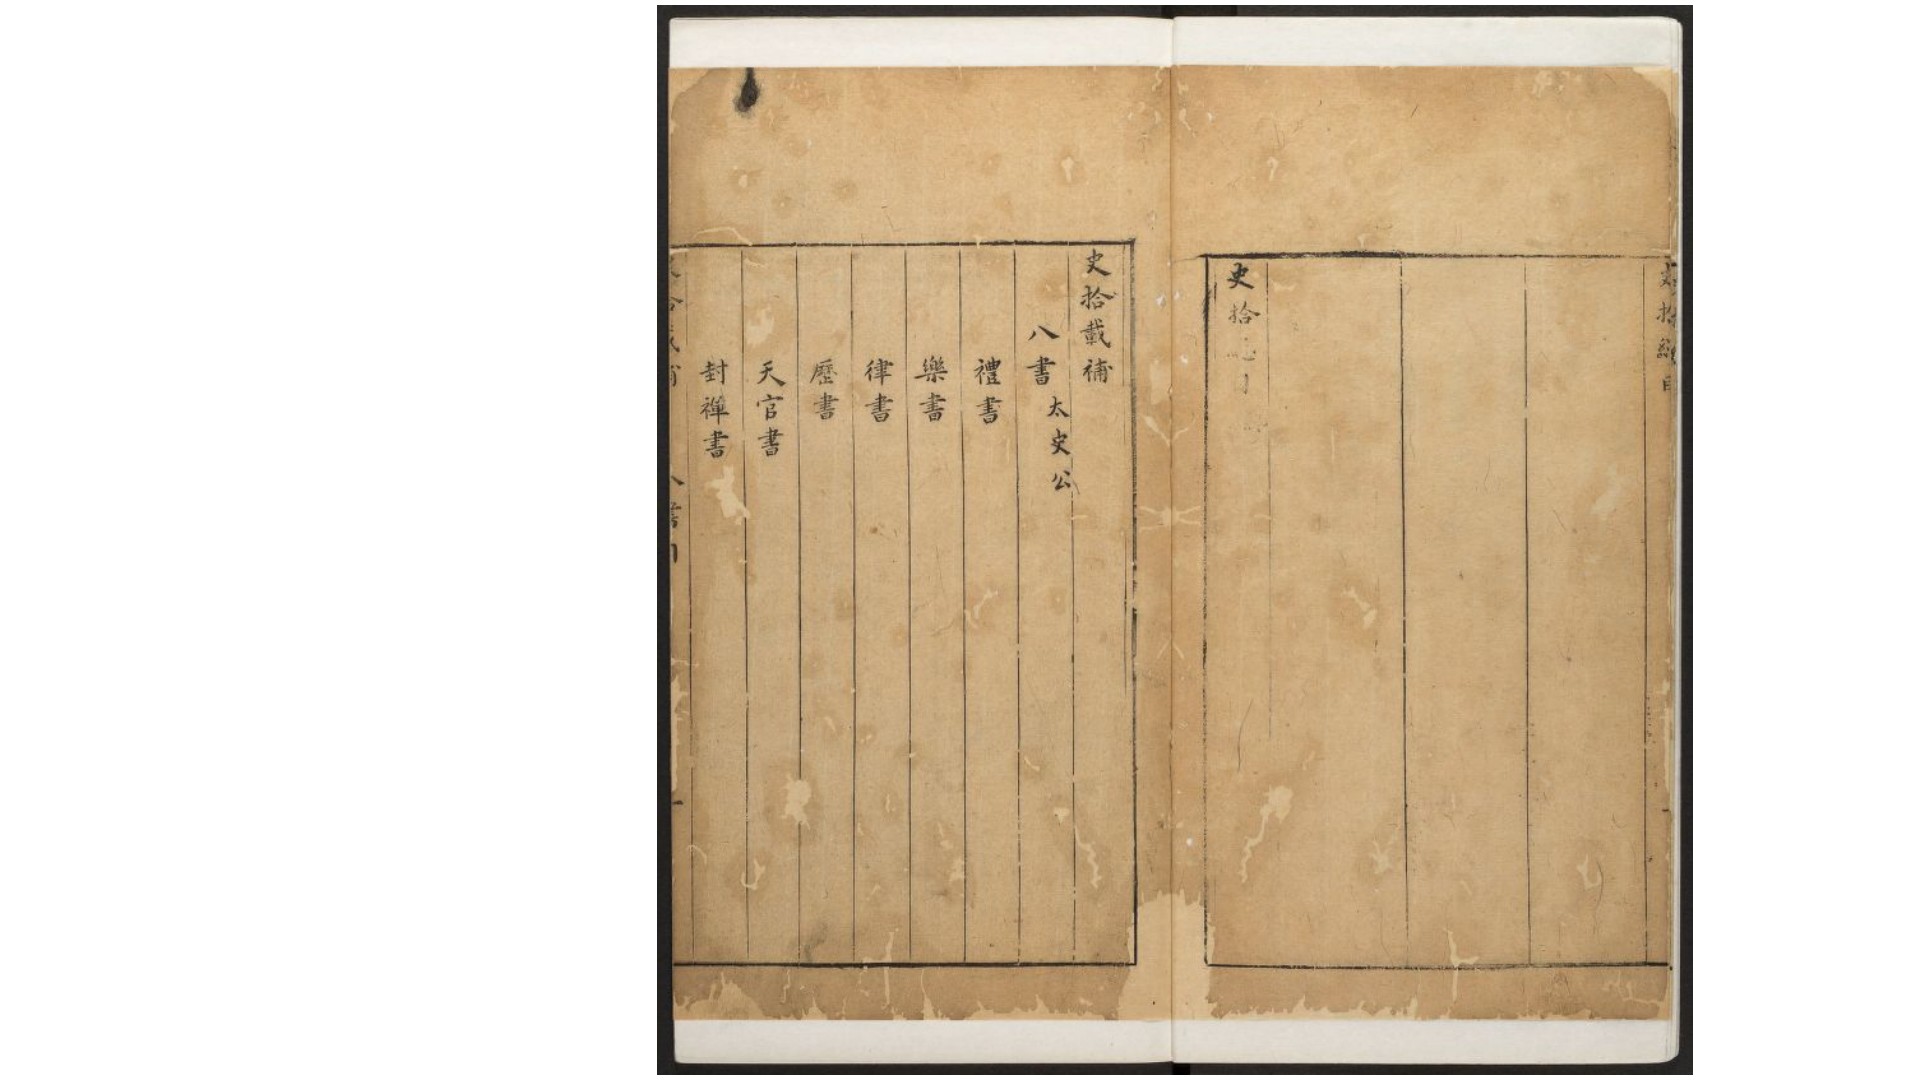 史拾
史拾載補
八書太史公
禮書
樂書
律書
歷書
天官書
封禪書